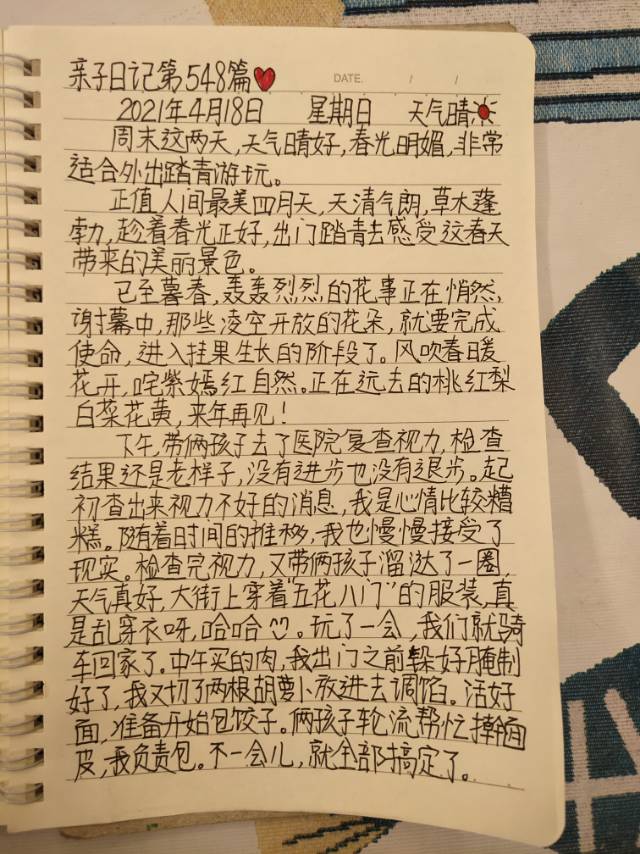 亲子日记第548篇❤
DATE. / /
2021年4月18日 星期日 天气晴☀
周末这两天,天气晴好,春光明媚,非常
适合外出踏青游玩。
正值人间最美四月天,天清气朗,草木蓬
勃,趁着春光正好,出门踏青去感受这春天
带来的美丽景色。
已至暮春,轰轰烈烈的花事正在悄然
谢幕中,那些凌空开放的花朵,就要完成
使命,进入挂果生长的阶段了。风吹春暖
花开,咤紫嫣红自然。正在远去的桃红梨
白菜花黄,来年再见!
下午,带俩孩子去了医院复查视力,检查
结果还是老样子,没有进步也没有退步。起
初查出来视力不好的消息,我是心情比较糟
糕。随着时间的推移,我也慢慢接受了
现实。检查完视力,又带俩孩子溜达了一圈,
天气真好,大街上穿着"五花八门"的服装,真
是乱穿衣呀,哈哈☺。玩了一会,我们就骑
车回家了。中午买的肉,我出门之前剁好腌制
好了,我又切了两根胡萝卜放进去调馅。活好
面,准备开始包饺子。俩孩子轮流帮忙擀面
皮,我负责包。不一会儿,就全部搞定了。